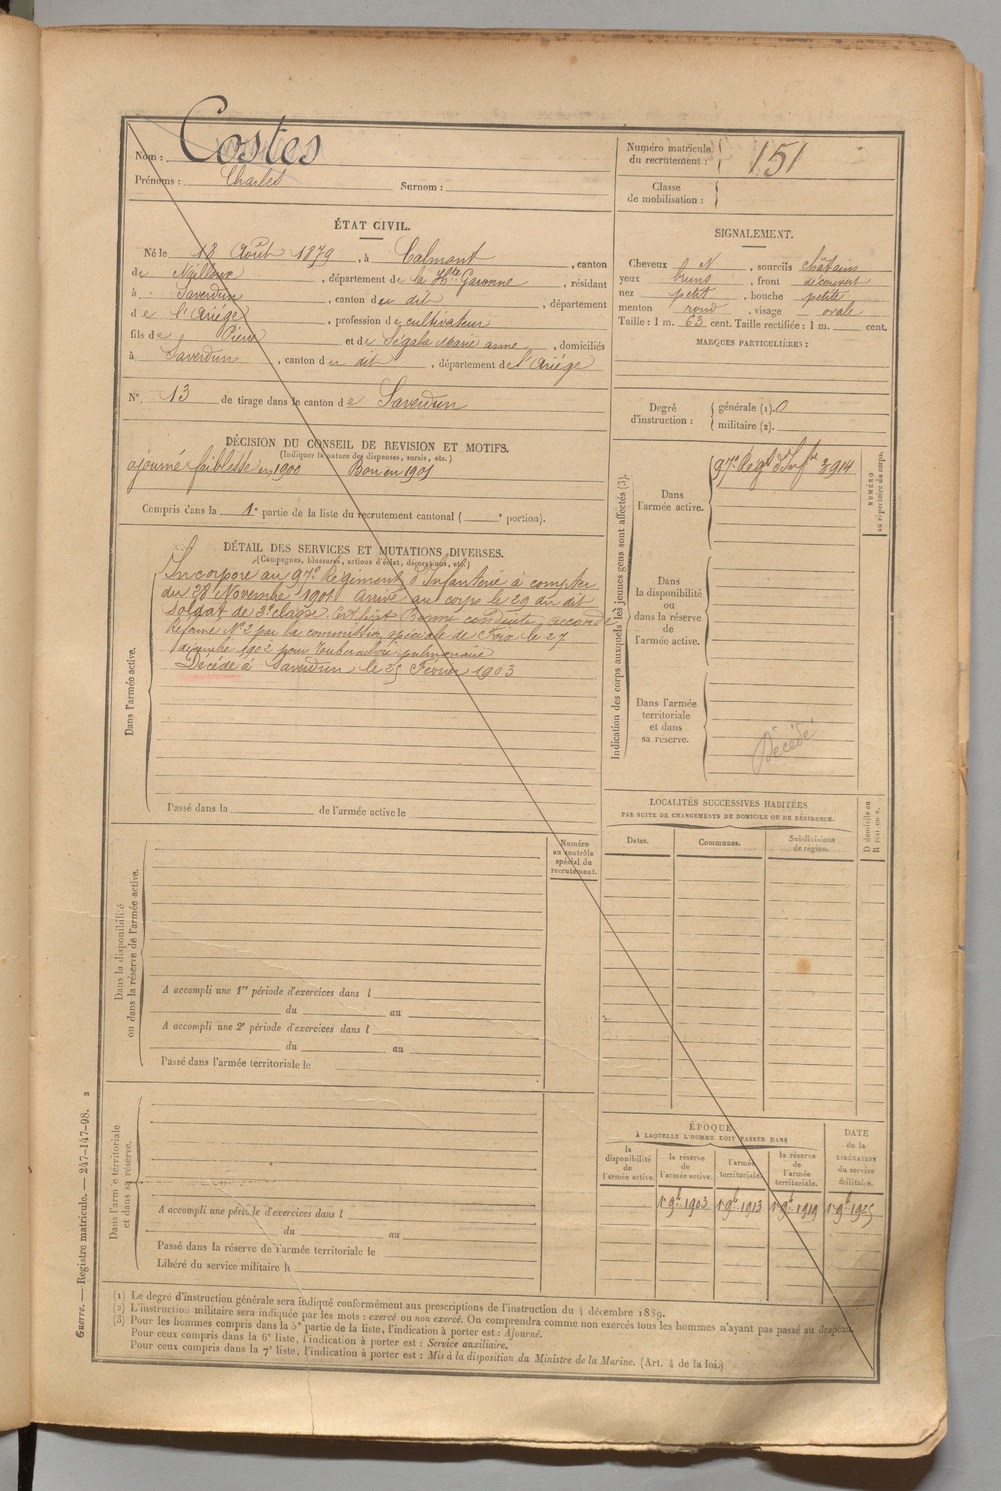 Nom : Costes
Prénoms : Charles Surnom :
Numéro matricule du recrutement : 151
Classe de mobilisation :
ÉTAT CIVIL.
Né le 18 Août 1879, à Calmont, canton
de Nailloux, département de la Hte Garonne, résidant
à Saverdun, canton du dit, département
de l'Ariège, profession de cultivateur
fils de Pierre et de Ségala Marie anne, domiciliés
à Saverdun, canton du dit, département de l'Ariège
N°. 13 de tirage dans le canton de Saverdun
SIGNALEMENT.
Cheveux N, sourcils châtains
yeux bruns, front découvert
nez petit, bouche petite
menton rond, visage ovale
Taille : 1 m. 63 cent. Taille rectifiée : 1 m. cent.
MARQUES PARTICULIÈRES :
Degré d'instruction : générale (1). 0
militaire (2).
DÉCISION DU CONSEIL DE REVISION ET MOTIFS.
(Indiquer la nature des dispenses, sursis, etc.)
ajourné faiblesse en 1900 Bon en 1901
Compris dans la 1e partie de la liste du recrutement cantonal ( e portion).
DÉTAIL DES SERVICES ET MUTATIONS DIVERSES.
(Campagnes, blessures, actions d'éclat, décorations, etc.)
Dans l'armée active.
Incorporé au 97e Régiment d'Infanterie à compter
du 28 Novembre 1901 Arrivé au corps le 29 du dit
Soldat de 2e classe. Certificat Bonne conduite accordé
Réformé N°2 par la commission spéciale de Foix le 27
décembre 1902 pour tuberculose pulmonaire
Décédé à Saverdun le 25 Février 1903
Passé dans la de l'armée active le
Indication des corps auxquels les jeunes gens sont affectés (3).
Dans l'armée active.
97e Régt d'Infrie 3914
NUMÉRO au répertoire du corps.
Dans la disponibilité ou dans la réserve de l'armée active.
Dans l'armée territoriale et dans sa réserve.
Décédé
LOCALITÉS SUCCESSIVES HABITÉES
PAR SUITE DE CHANGEMENTS DE DOMICILE OU DE RÉSIDENCE.
Dates. Communes. Subdivisions de région. D domicile ou R résidence.
Dans la disponibilité ou dans la réserve de l'armée active.
Numéro au contrôle spécial du recrutement.
A accompli une 1re période d'exercices dans l
du au
A accompli une 2e période d'exercices dans l
du au
Passé dans l'armée territoriale le
Dans l'armée territoriale et dans sa réserve.
A accompli une période d'exercices dans l
du au
Passé dans la réserve de l'armée territoriale le
Libéré du service militaire le
ÉPOQUE
À LAQUELLE L'HOMME DOIT PASSER DANS
la disponibilité de l'armée active.
la réserve de l'armée active.
l'armée territoriale.
la réserve de l'armée territoriale.
DATE de la LIBÉRATION du service militaire.
1er 9bre 1903 1er 9bre 1913 1er 9bre 1919 1er 9bre 1925
(1) Le degré d'instruction générale sera indiqué conformément aux prescriptions de l'instruction du 4 décembre 1889.
(2) L'instruction militaire sera indiquée par les mots : exercé ou non exercé. On comprendra comme non exercés tous les hommes n'ayant pas passé au drapeau.
(3) Pour les hommes compris dans la 5e partie de la liste, l'indication à porter est : Ajourné.
Pour ceux compris dans la 6e liste, l'indication à porter est : Service auxiliaire.
Pour ceux compris dans la 7e liste, l'indication à porter est : Mis à la disposition du Ministre de la Marine. (Art. 4 de la loi.)
Guerre. — Registre matricule. — 247-147-98. 2